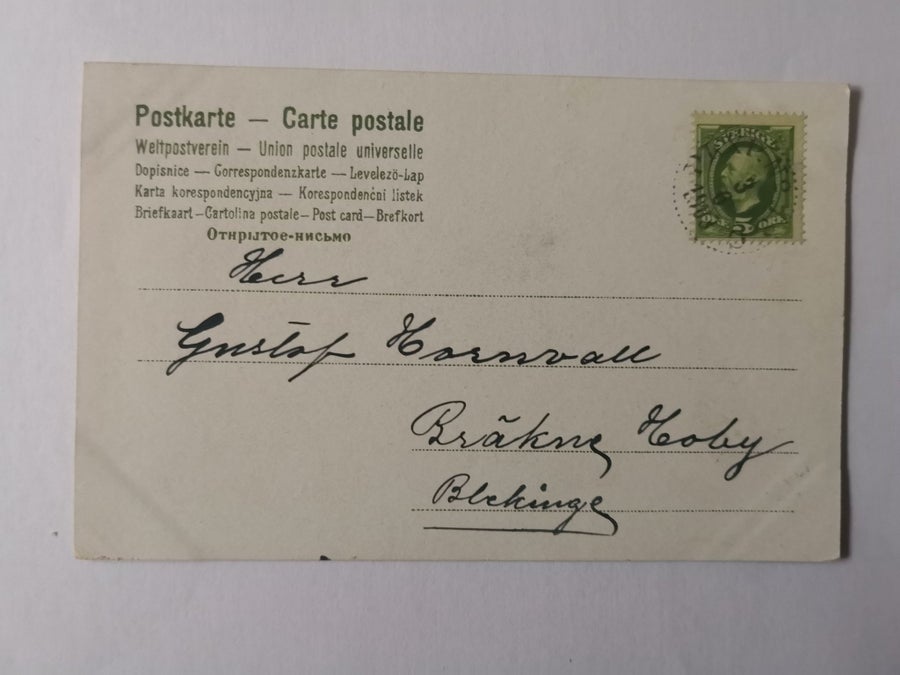 Postkarte — Carte postale
Weltpostverein — Union postale universelle
Dopisnice — Correspondenzkarte — Levelezö-Lap
Karta korespondencyjna — Korespondenčni listek
Briefkaart — Cartolina postale — Post card — Brefkort
Открытое-письмо
SVERIGE
5 ÖRE
Herr
Gustof Hornvall
Bräkne Hoby
Blekinge